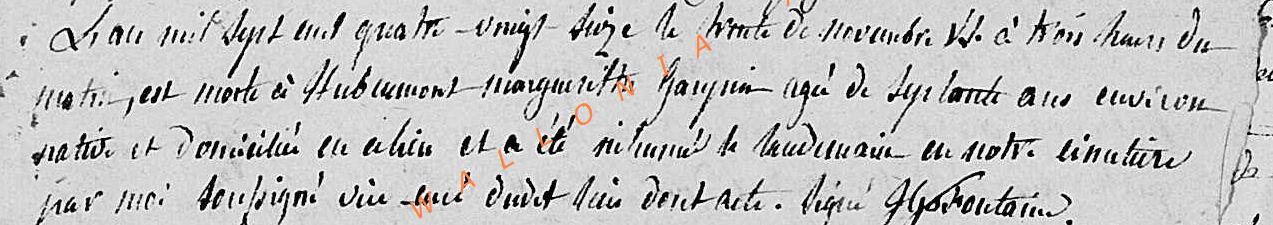 L'an mil sept cent quatre-vingt seize le trente de novembre à trois heures du
matin, est morte à Hubermont margueritte agée de septante ans environ
native et domiciliée en ce lieu et a été inhumé le lendemain en notre cimetiere
par moi soussigné vice-curé dudit lieu dont acte. signé Fontaine.
WALLONIA